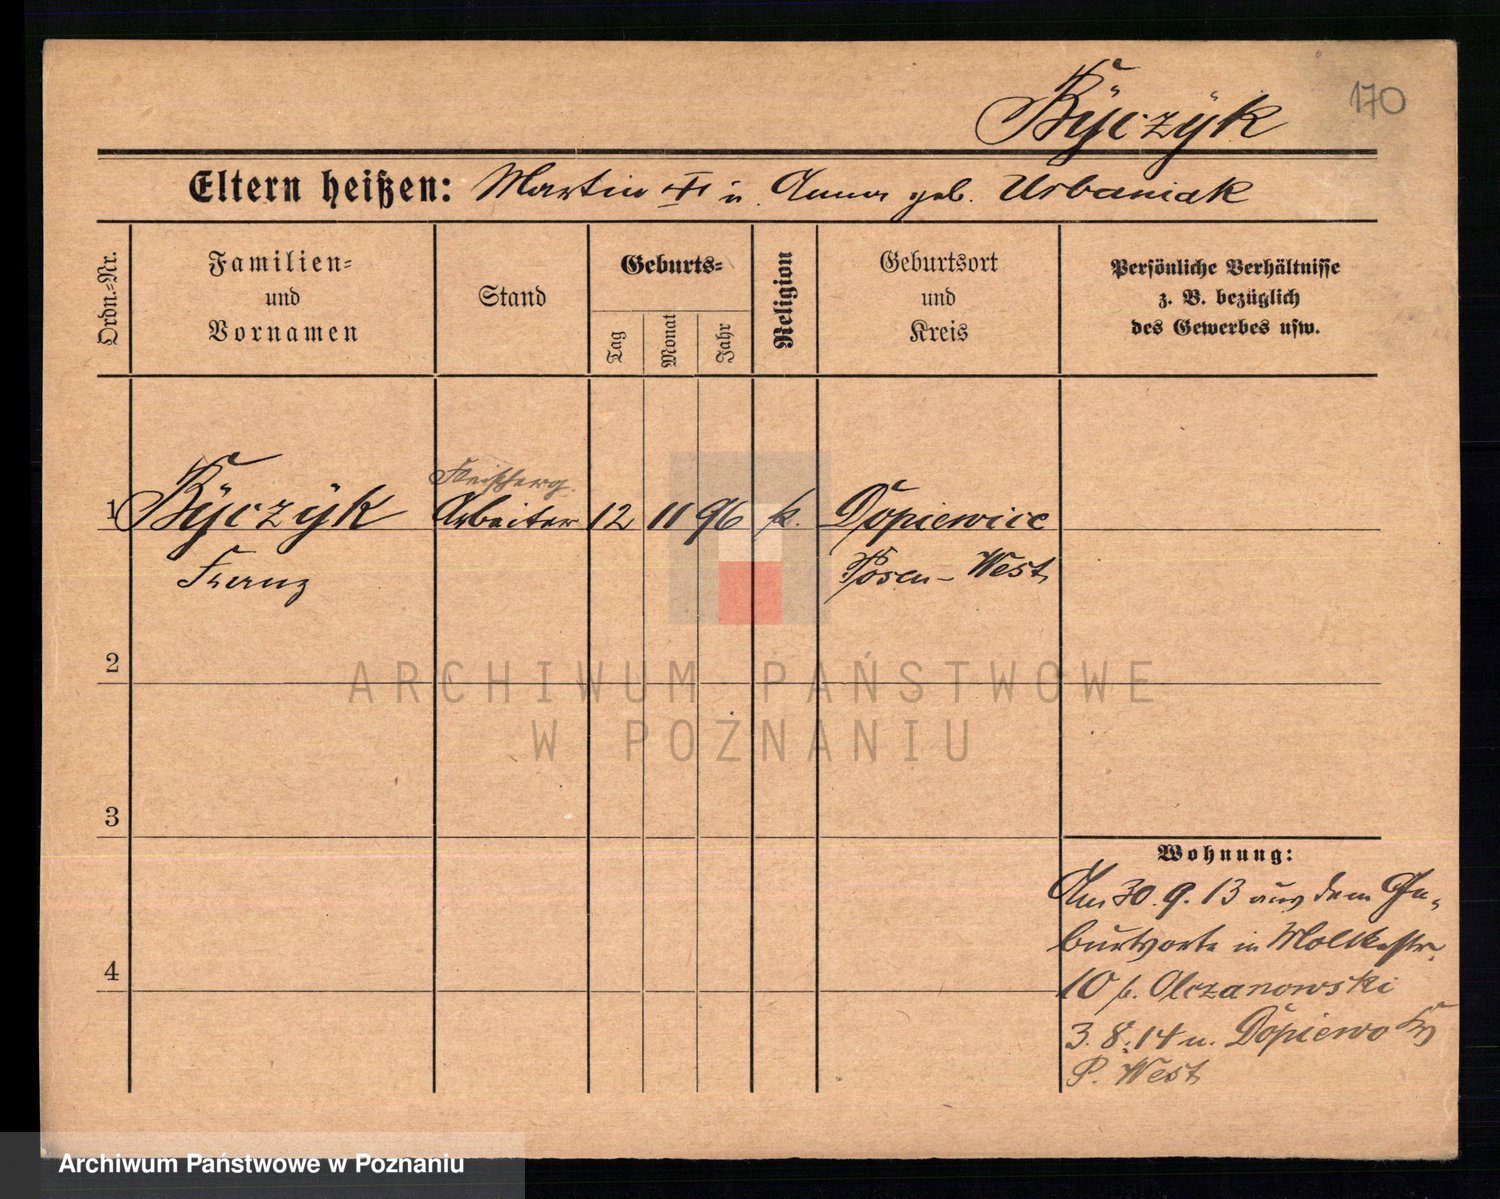 170
Byczyk
Eltern heißen: Martin u. Anna geb. Urbaniak
Ordn.-Nr.
Familien-
und
Vornamen
Stand
Geburts-
Tag
Monat
Jahr
Religion
Geburtsort
und
Kreis
Persönliche Verhältnisse
z. B. bezüglich
des Gewerbes usw.
1 Byczyk Arbeiter 12 11 96 k. Dopiewice
Franz Posen-West
2
3
4
Wohnung:
Am 30. 9. 13 aus dem Ge-
burtsorte in Moltkestr.
10 b. Olczanowski
3. 8. 14 n. Dopiewo
P. West
ARCHIWUM PAŃSTWOWE
W POZNANIU
Archiwum Państwowe w Poznaniu